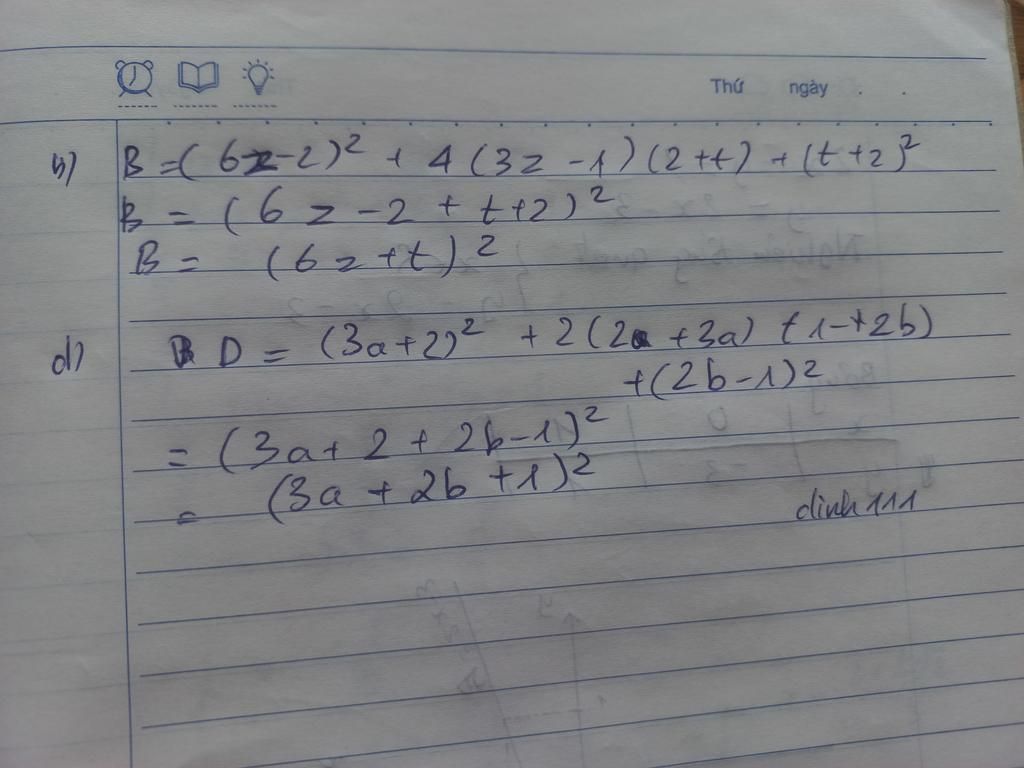 Thứ ngày . .
b) B = (6z-2)² + 4(3z-1)(2+t) + (t+2)²
B = (6z-2+t+2)²
B = (6z+t)²
d) D = (3a+2)² + 2(2+3a)(1-+2b)
+(2b-1)²
= (3a+2+2b-1)²
= (3a+2b+1)²
dinh111